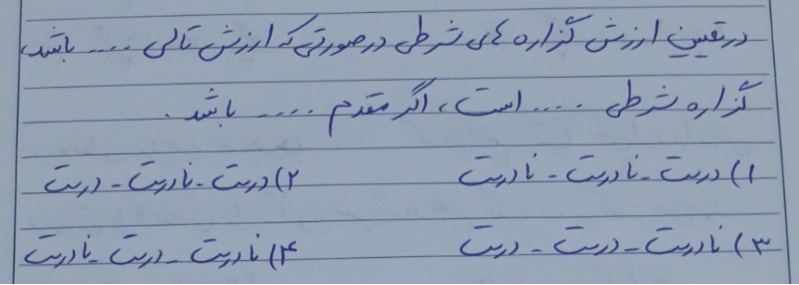 در تعیین ارزش گزاره های شرطی در صورتی که ارزش تالی .... باشد،
گزاره شرطی .... است، اگر مقدم .... باشد.
۱) درست - نادرست - نادرست ۲) درست - نادرست - درست
۳) نادرست - درست - درست ۴) نادرست - درست - نادرست